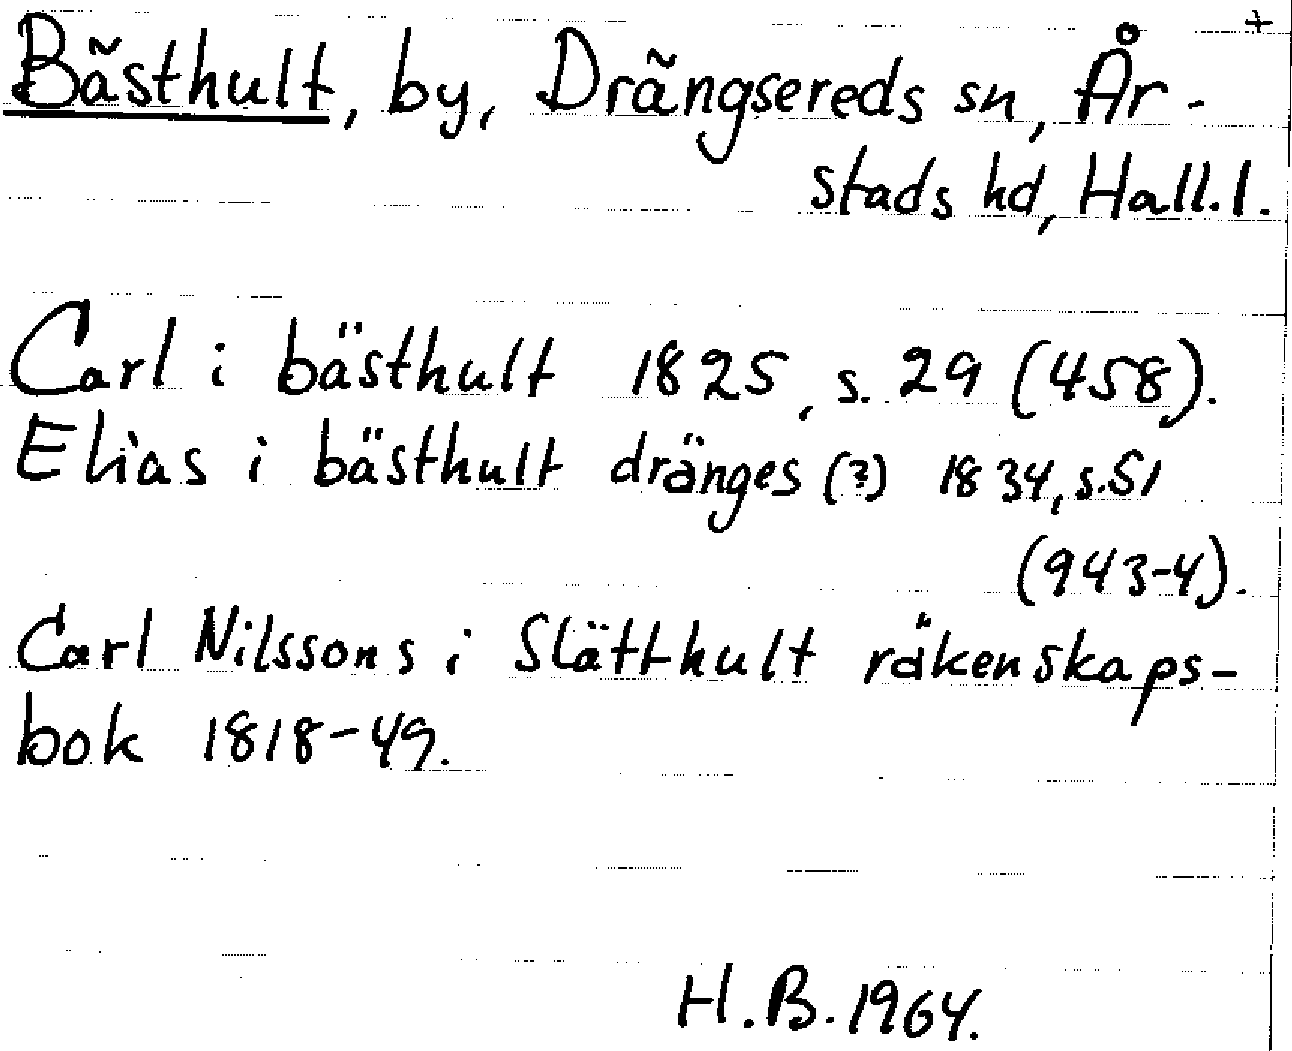 +
Bästhult, by, Drängsereds sn, År-
stads hd, Hall. l.
Carl i bästhult 1825, s. 29 (458).
Elias i bästhult dränges (?) 1834, s. 51
(943-4).
Carl Nilssons i Slätthult räkenskaps-
bok 1818-49.
H.B. 1964.